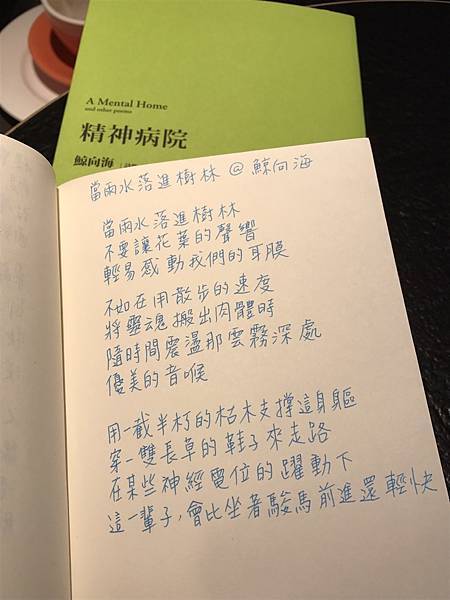 A Mental Home
and other poems
精神病院
鯨向海
當雨水落進樹林 @ 鯨向海
當雨水落進樹林
不要讓花葉的聲響
輕易感動我們的耳膜
不如在用散步的速度
將靈魂搬出肉體時
隨時間震盪那雲霧深處
優美的音喉
用一截半朽的枯木支撐這身軀
穿一雙長草的鞋子來走路
在某些神經電位的躍動下
這一輩子，會比坐著駿馬前進還輕快